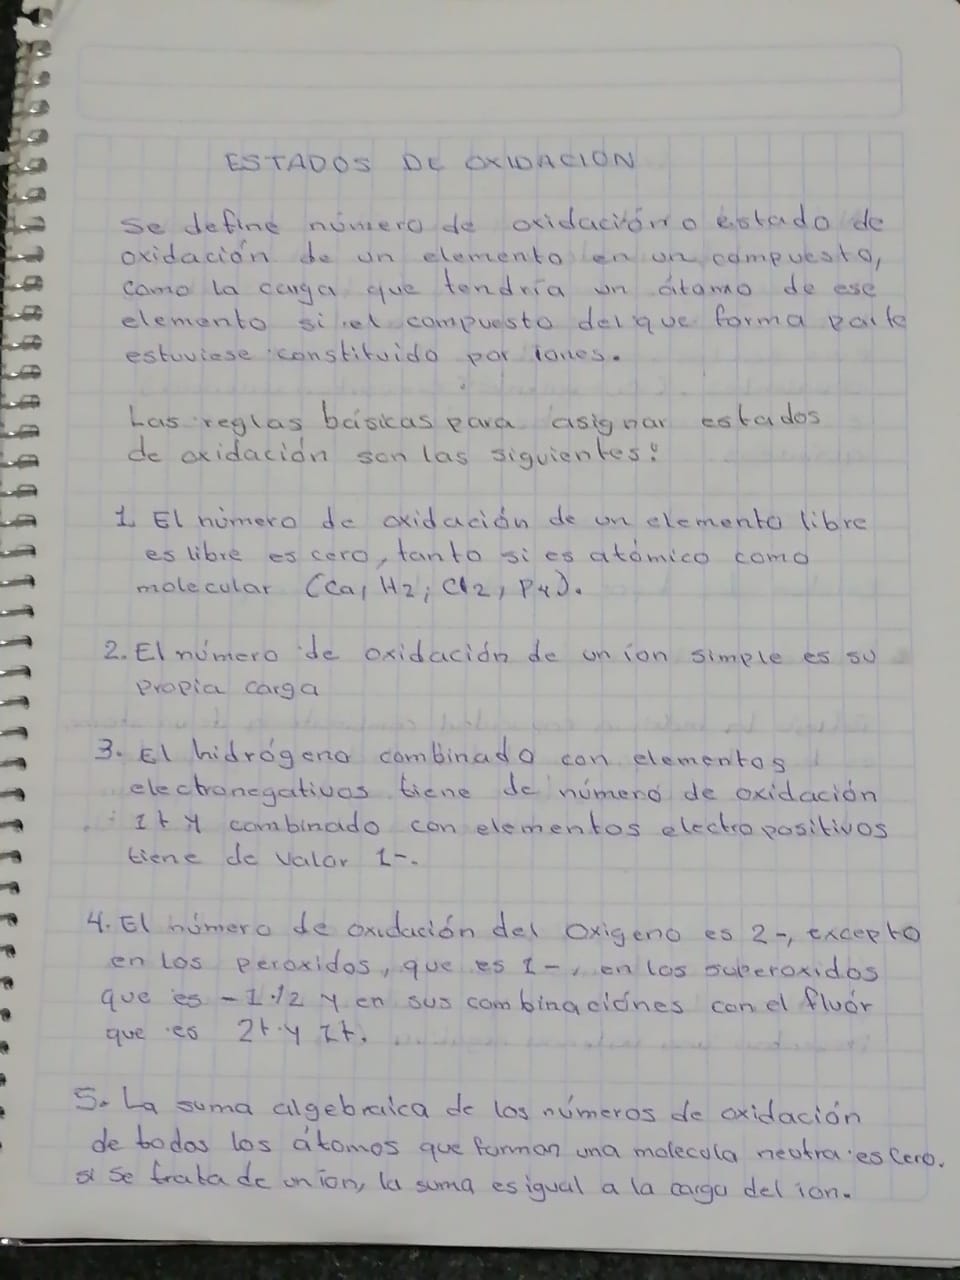 ESTADOS DE OXIDACION
Se define número de oxidación o estado de
oxidación de un elemento en un compuesto,
como la carga que tendría un átomo de ese
elemento si el compuesto del que forma parte
estuviese constituido por iones.
Las reglas básicas para asignar estados
de oxidación son las siguientes:
1. El número de oxidación de un elemento libre
es libre es cero, tanto si es atómico como
molecular (Ca, H2, Cl2, P4).
2. El número de oxidación de un ion simple es su
propia carga
3. El hidrógeno combinado con elementos
electronegativos tiene de número de oxidación
1+ y combinado con elementos electropositivos
tiene de valor 1-.
4. El número de oxidación del Oxigeno es 2-, excepto
en los peroxidos, que es 1-, en los superoxidos
que es -1/2 y en sus combinaciónes con el fluór
que es 2+ y 1+.
5. La suma algebraica de los números de oxidación
de todos los átomos que forman una molecula neutra es cero.
si se trata de un ion, la suma es igual a la carga del ion.